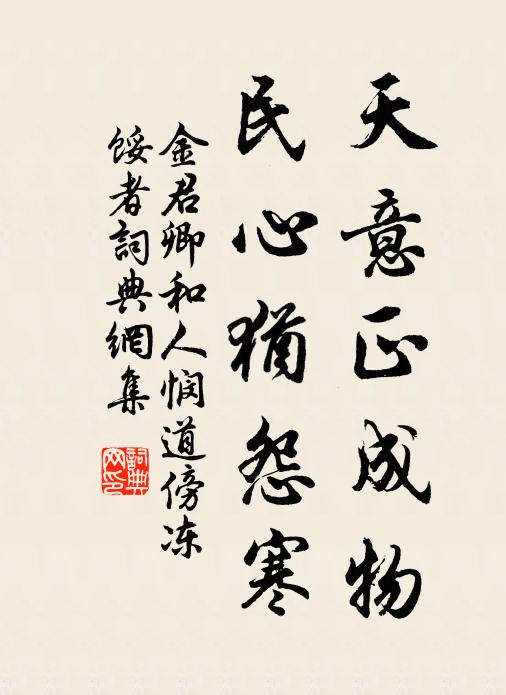 天意正成物
民心犹怨寒
金君卿和人悯道傍冻
馁者詞典網集
詞典網印